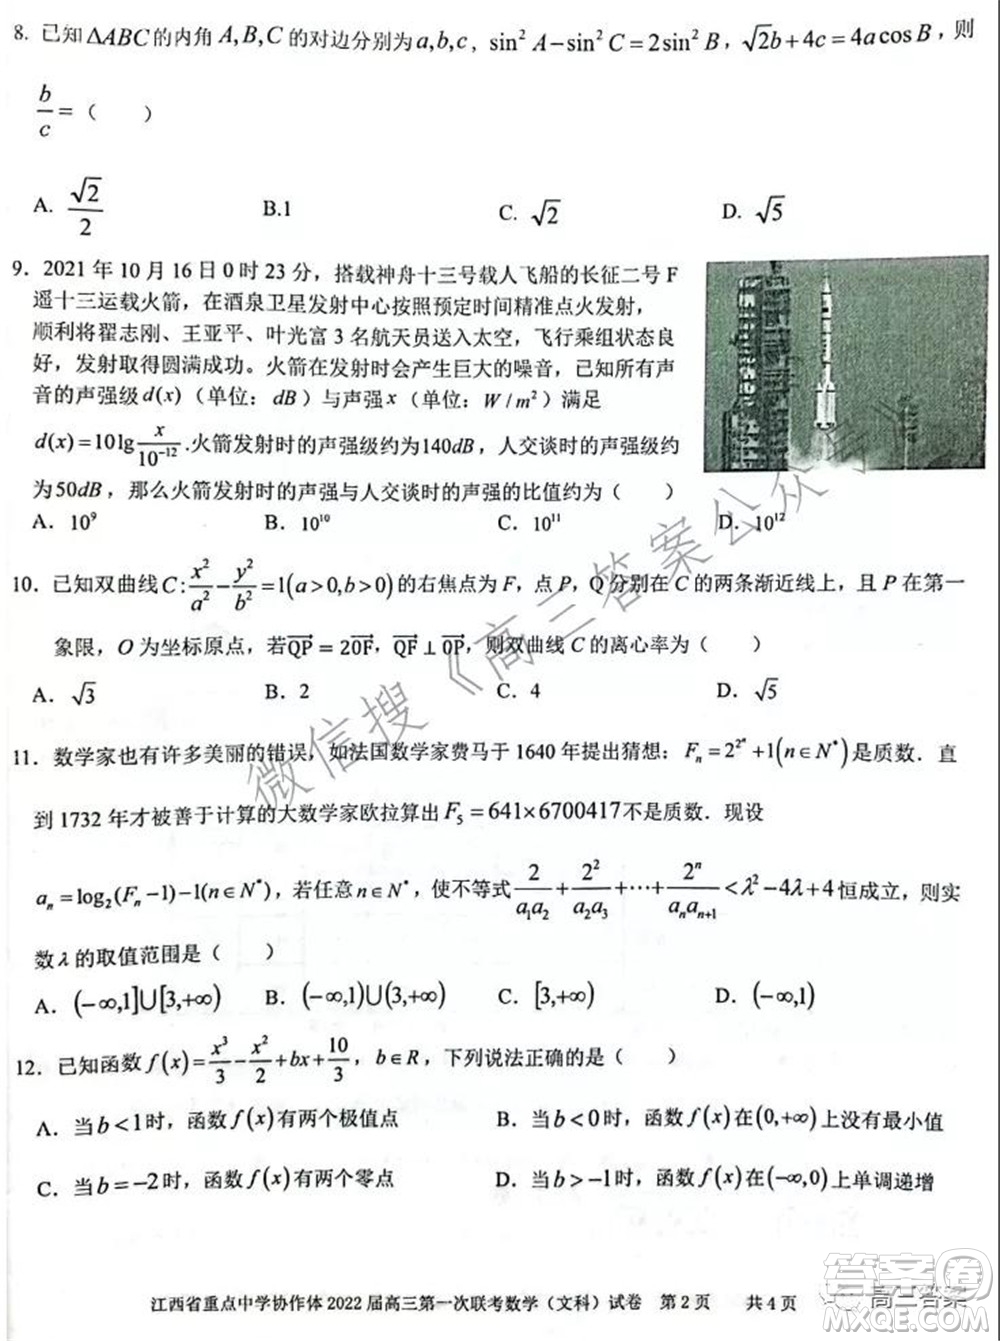 8. 已知 ΔABC 的内角 A,B,C 的对边分别为 a,b,c，sin² A−sin² C=2sin² B，√2b+4c=4acosB，则
b/c=（　　）
A. √2/2　B.1　C. √2　D. √5
9．2021 年 10 月 16 日 0 时 23 分，搭载神舟十三号载人飞船的长征二号 F
遥十三运载火箭，在酒泉卫星发射中心按照预定时间精准点火发射，
顺利将翟志刚、王亚平、叶光富 3 名航天员送入太空，飞行乘组状态良
好，发射取得圆满成功。火箭在发射时会产生巨大的噪音，已知所有声
音的声强级 d(x)（单位：dB）与声强 x（单位：W/m²）满足
d(x)=10lg x/10⁻¹².火箭发射时的声强级约为140dB，人交谈时的声强级约
为50dB，那么火箭发射时的声强与人交谈时的声强的比值约为（　　）
A．10⁹　B．10¹⁰　C．10¹¹　D．10¹²
10．已知双曲线 C:x²/a²−y²/b²=1(a>0,b>0)的右焦点为 F，点 P，Q 分别在 C 的两条渐近线上，且 P 在第一
象限，O 为坐标原点，若Q͞P⃗=2O͞F⃗，Q͞F⃗⊥O͞P⃗，则双曲线 C 的离心率为（　　）
A．√3　B．2　C．4　D．√5
11．数学家也有许多美丽的错误，如法国数学家费马于 1640 年提出猜想：Fₙ=2^(2ⁿ)+1(n∈N*)是质数．直
到 1732 年才被善于计算的大数学家欧拉算出 F₅=641×6700417不是质数．现设
aₙ=log₂(Fₙ−1)−1(n∈N*)，若任意n∈N*，使不等式2/a₁a₂+2²/a₂a₃+⋯+2ⁿ/aₙaₙ₊₁<λ²−4λ+4恒成立，则实
数 λ 的取值范围是（　　）
A．(−∞,1]∪[3,+∞)　B．(−∞,1)∪(3,+∞)　C．[3,+∞)　D．(−∞,1)
12．已知函数 f(x)=x³/3−x²/2+bx+10/3，b∈R，下列说法正确的是（　　）
A．当b<1时，函数f(x)有两个极值点　B．当b<0时，函数f(x)在(0,+∞)上没有最小值
C．当b=−2时，函数f(x)有两个零点　D．当b>−1时，函数f(x)在(−∞,0)上单调递增
微信搜《高三答案公众号》
江西省重点中学协作体 2022 届高三第一次联考数学（文科）试卷　第 2 页　共 4 页
高三答案
答案圈
MXQE.COM